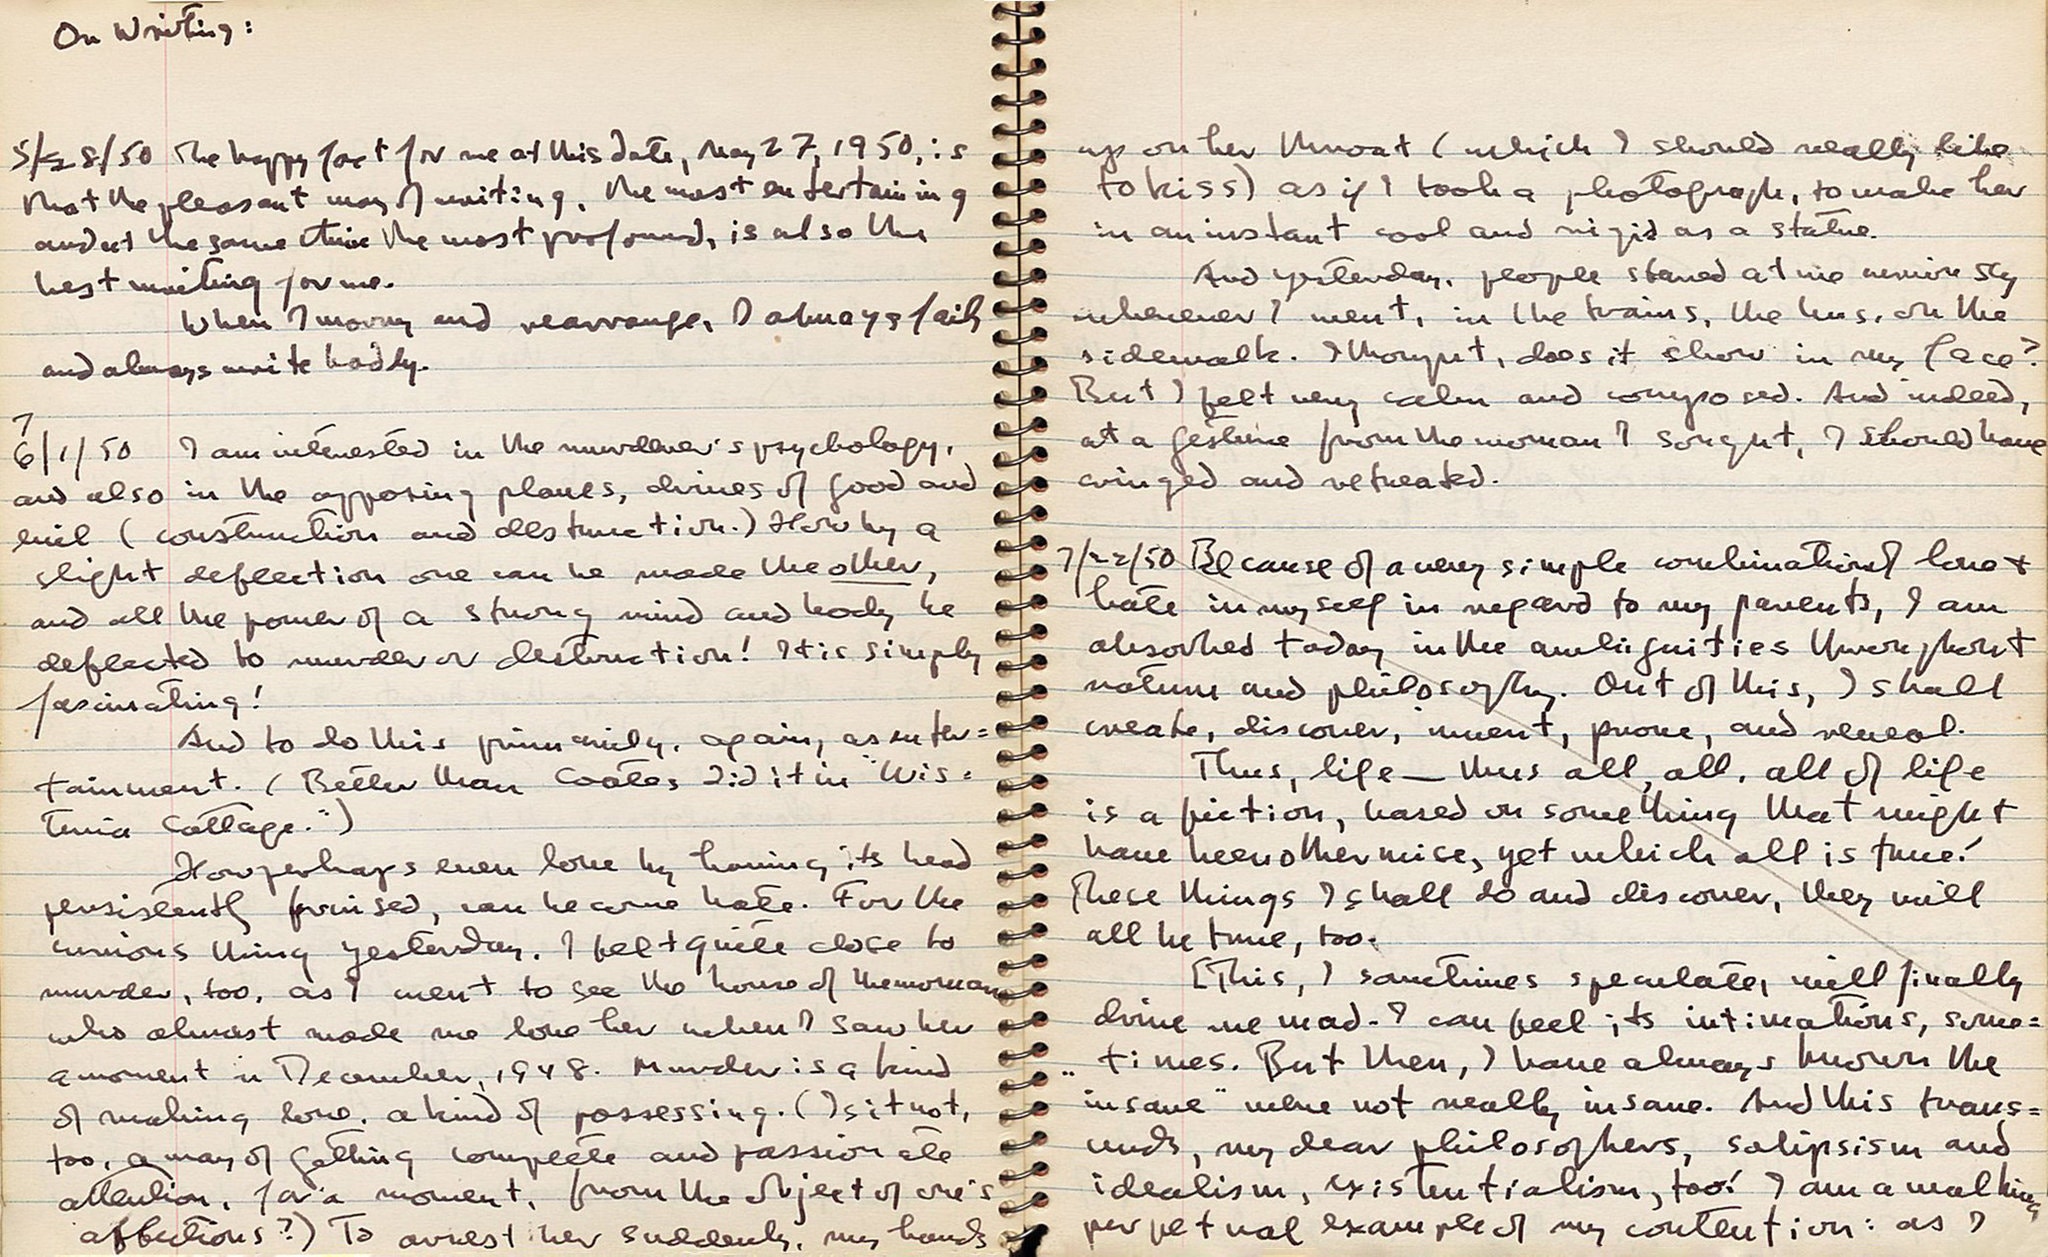 On Writing:
5/28/50 The happy fact for me at this date, May 27, 1950, is
that the pleasant way of writing, the most entertaining
and at the same time the most profound, is also the
best writing for me.
When I worry and rearrange, I always fail
and always write badly.
7
6/1/50 I am interested in the murderer's psychology,
and also in the opposing planes, drives of good and
evil (construction and destruction.) How by a
slight deflection one can be made the other,
and all the power of a strong mind and body be
deflected to murder or destruction! It is simply
fascinating!
And to do this primarily, again, as enter=
tainment. (Better than Coates did it in "Wis=
teria Cottage.")
How perhaps even love by having its head
persistently bruised, can become hate. For the
curious thing yesterday, I felt quite close to
murder, too, as I went to see the house of the woman
who almost made me love her when I saw her
a moment in December, 1948. Murder is a kind
of making love, a kind of possessing. (Is it not,
too, a way of getting complete and passionate
attention, for a moment, from the object of one's
affections?) To arrest her suddenly, my hands
up on her throat (which I should really like
to kiss) as if I took a photograph, to make her
in an instant cool and rigid as a statue.
And yesterday, people stared at me
wherever I went, in the trains, the bus, on the
sidewalk. I thought, does it show in my face?
But I felt very calm and composed. And indeed,
at a gesture from the woman I sought, I should have
cringed and retreated.
7/22/50 Because of a very simple combination of love +
hate in myself in regard to my parents, I am
absorbed today in the ambiguities throughout
nature and philosophy. Out of this, I shall
create, discover, invent, prove, and reveal.
Thus, life — thus all, all, all of life
is a fiction, based on something that might
have been otherwise, yet which all is true!
These things I shall do and discover, they will
all be true, too.
[This, I sometimes speculate, will finally
drive me mad. I can feel its intimations, some=
times. But then, I have always known the
"insane" were not really insane. And this trans=
cends, my dear philosophers, solipsism and
idealism, existentialism, too! I am a walking
perpetual example of my contention: as I